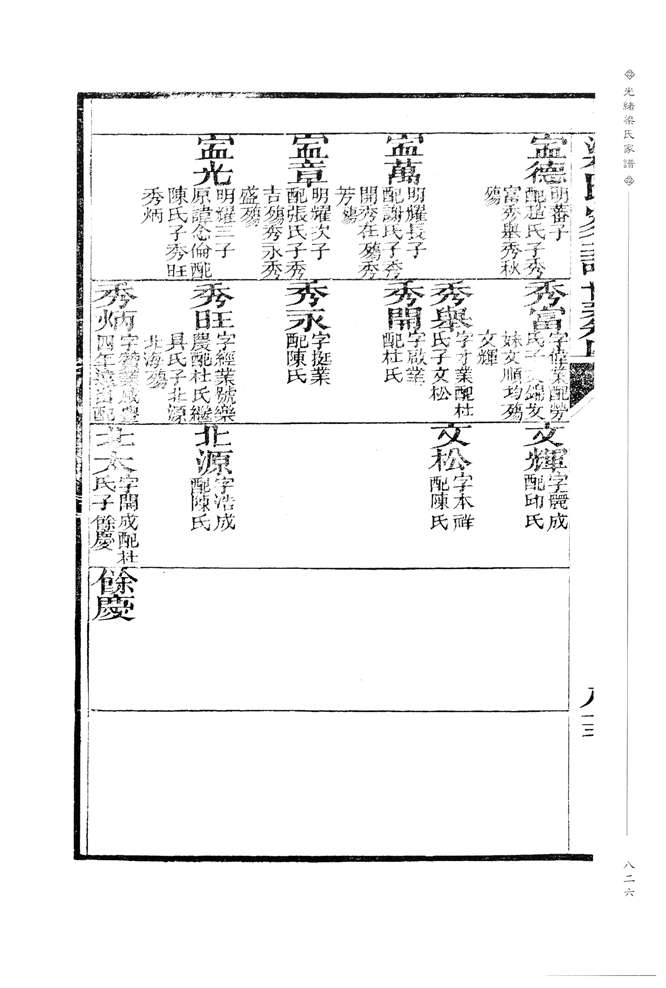 光緒梁氏家譜
八二六
孟德
明蕃子
配趙氏子秀
富秀舉秀秋
殤
孟萬
明耀長子
配謝氏子秀
開秀在殤秀
芳殤
孟章
明耀次子
配張氏子秀
吉殤秀永秀
盛殤
孟光
明耀三子
原諱念倫配
陳氏子秀旺
秀炳
秀富
字偉業配勞
妹文順均殤
文輝
秀舉
字才業配杜
氏子文松
秀開
字啟業
配杜氏
秀永
字挺業
配陳氏
秀旺
字經業號樂
農配杜氏繼
具氏子北源
北海殤
秀炳
文輝
字麗成
配邱氏
文松
字本祥
配陳氏
北源
字浩成
配陳氏
北太
字開成配杜
氏子餘慶
餘慶